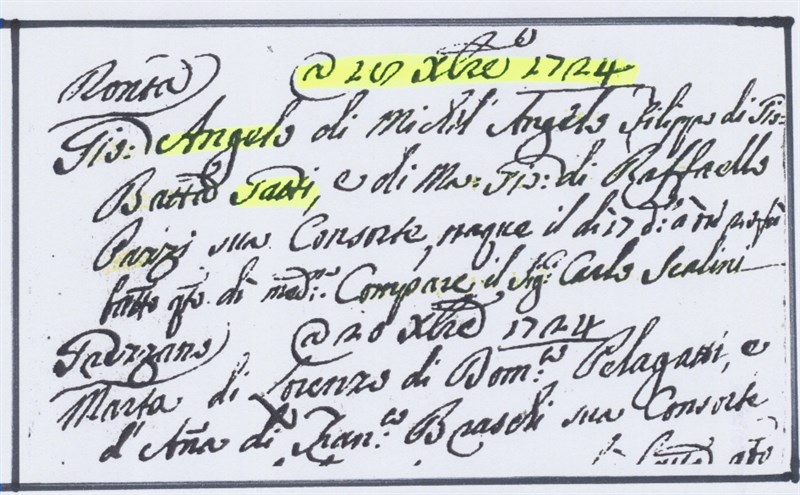 Ronta
a 20 Xbre 1724
Gio: Angelo di Michel' Angelo Filippo di Gio:
Battta Tatti, e di Ma: Gia: di Raffaello
Parzi sua Consorte, naque il dì 17 d:
batto qto dì medmo. Compare il Sigr Carlo Scalini
a 20 Xbre 1724
Marta di Lorenzo di Domco Pelagatti, e
d'Anna di Franco Braschi sua Consorte